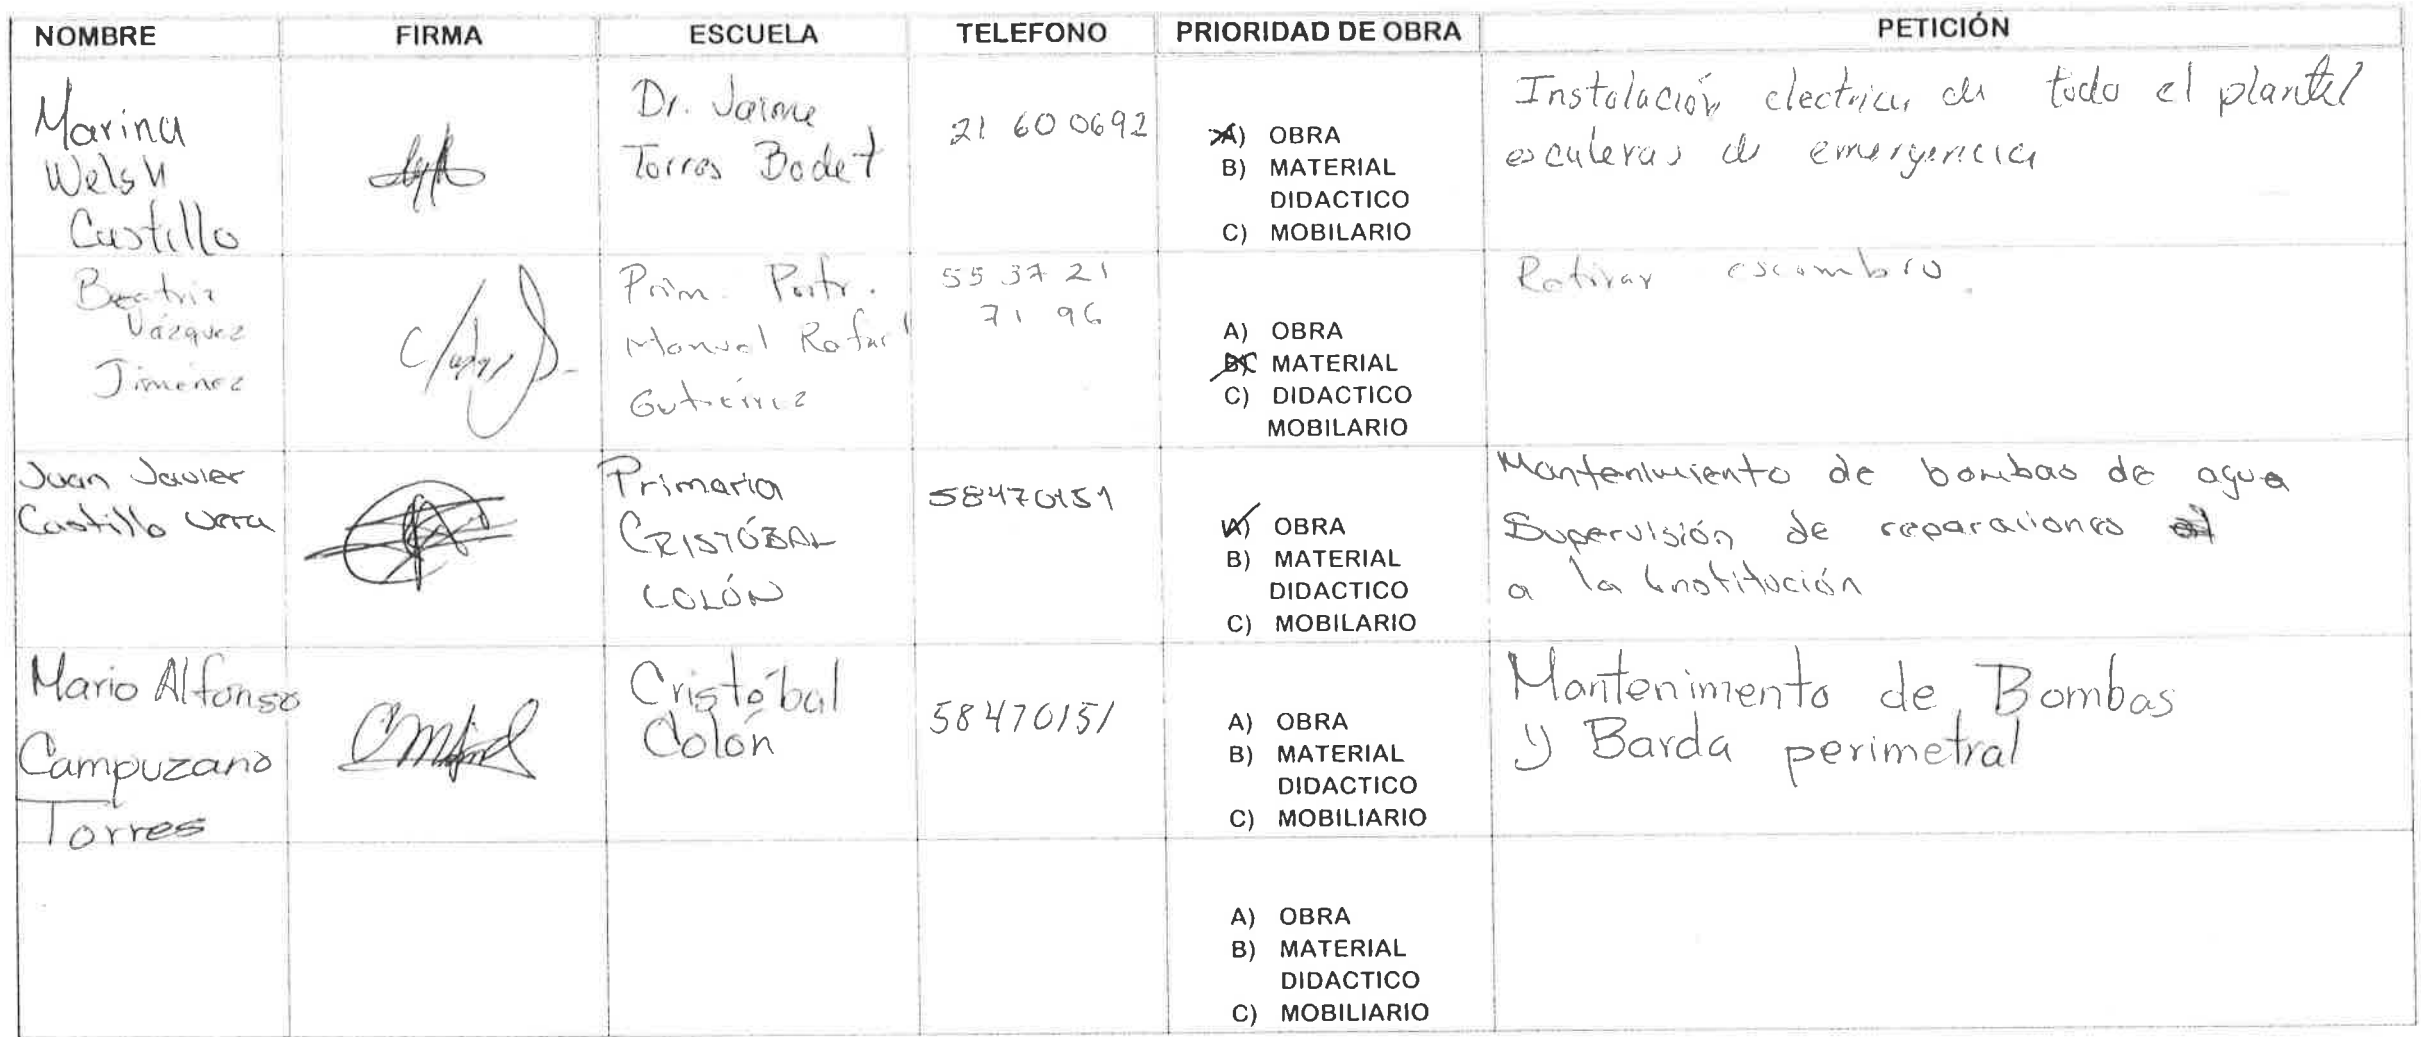 NOMBRE FIRMA ESCUELA TELEFONO PRIORIDAD DE OBRA PETICIÓN
Marina
Welsh
Castillo
Dr. Jaime
Torres Bodet
21 60 0692
A) OBRA
B) MATERIAL
DIDACTICO
C) MOBILARIO
Instalación electrica de todo el plantel
escaleras de emergencia
Beatriz
Vázquez
Jiménez
Prim. Partr.
Manuel Rafael
Gutiérrez
55 37 21
71 96
A) OBRA
B) MATERIAL
C) DIDACTICO
MOBILARIO
Retirar escombro.
Juan Javier
Castillo Vera
Primaria
CRISTÓBAL
COLÓN
58470151
A) OBRA
B) MATERIAL
DIDACTICO
C) MOBILARIO
Mantenimiento de bombas de agua
Supervisión de reparaciones
a la institución
Mario Alfonso
Campuzano
Torres
Cristóbal
Colón
58470151
A) OBRA
B) MATERIAL
DIDACTICO
C) MOBILIARIO
Mantenimento de Bombas
y Barda perimetral
A) OBRA
B) MATERIAL
DIDACTICO
C) MOBILIARIO